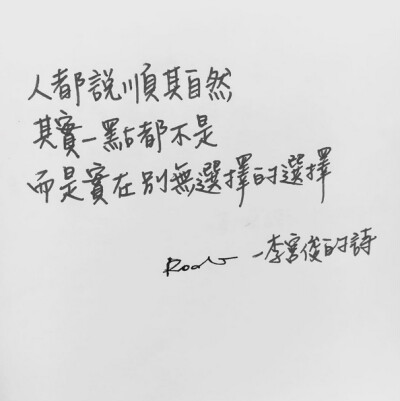 人都說順其自然
其實一點都不是
而是實在別無選擇的選擇
—李宮俊的詩